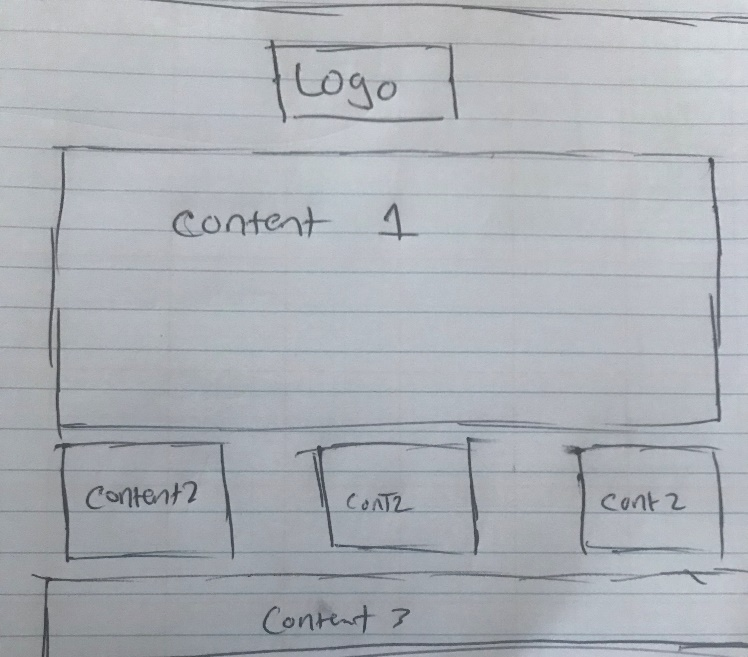 Logo
Content 1
Content2
ConT2
Cont 2
Content 3